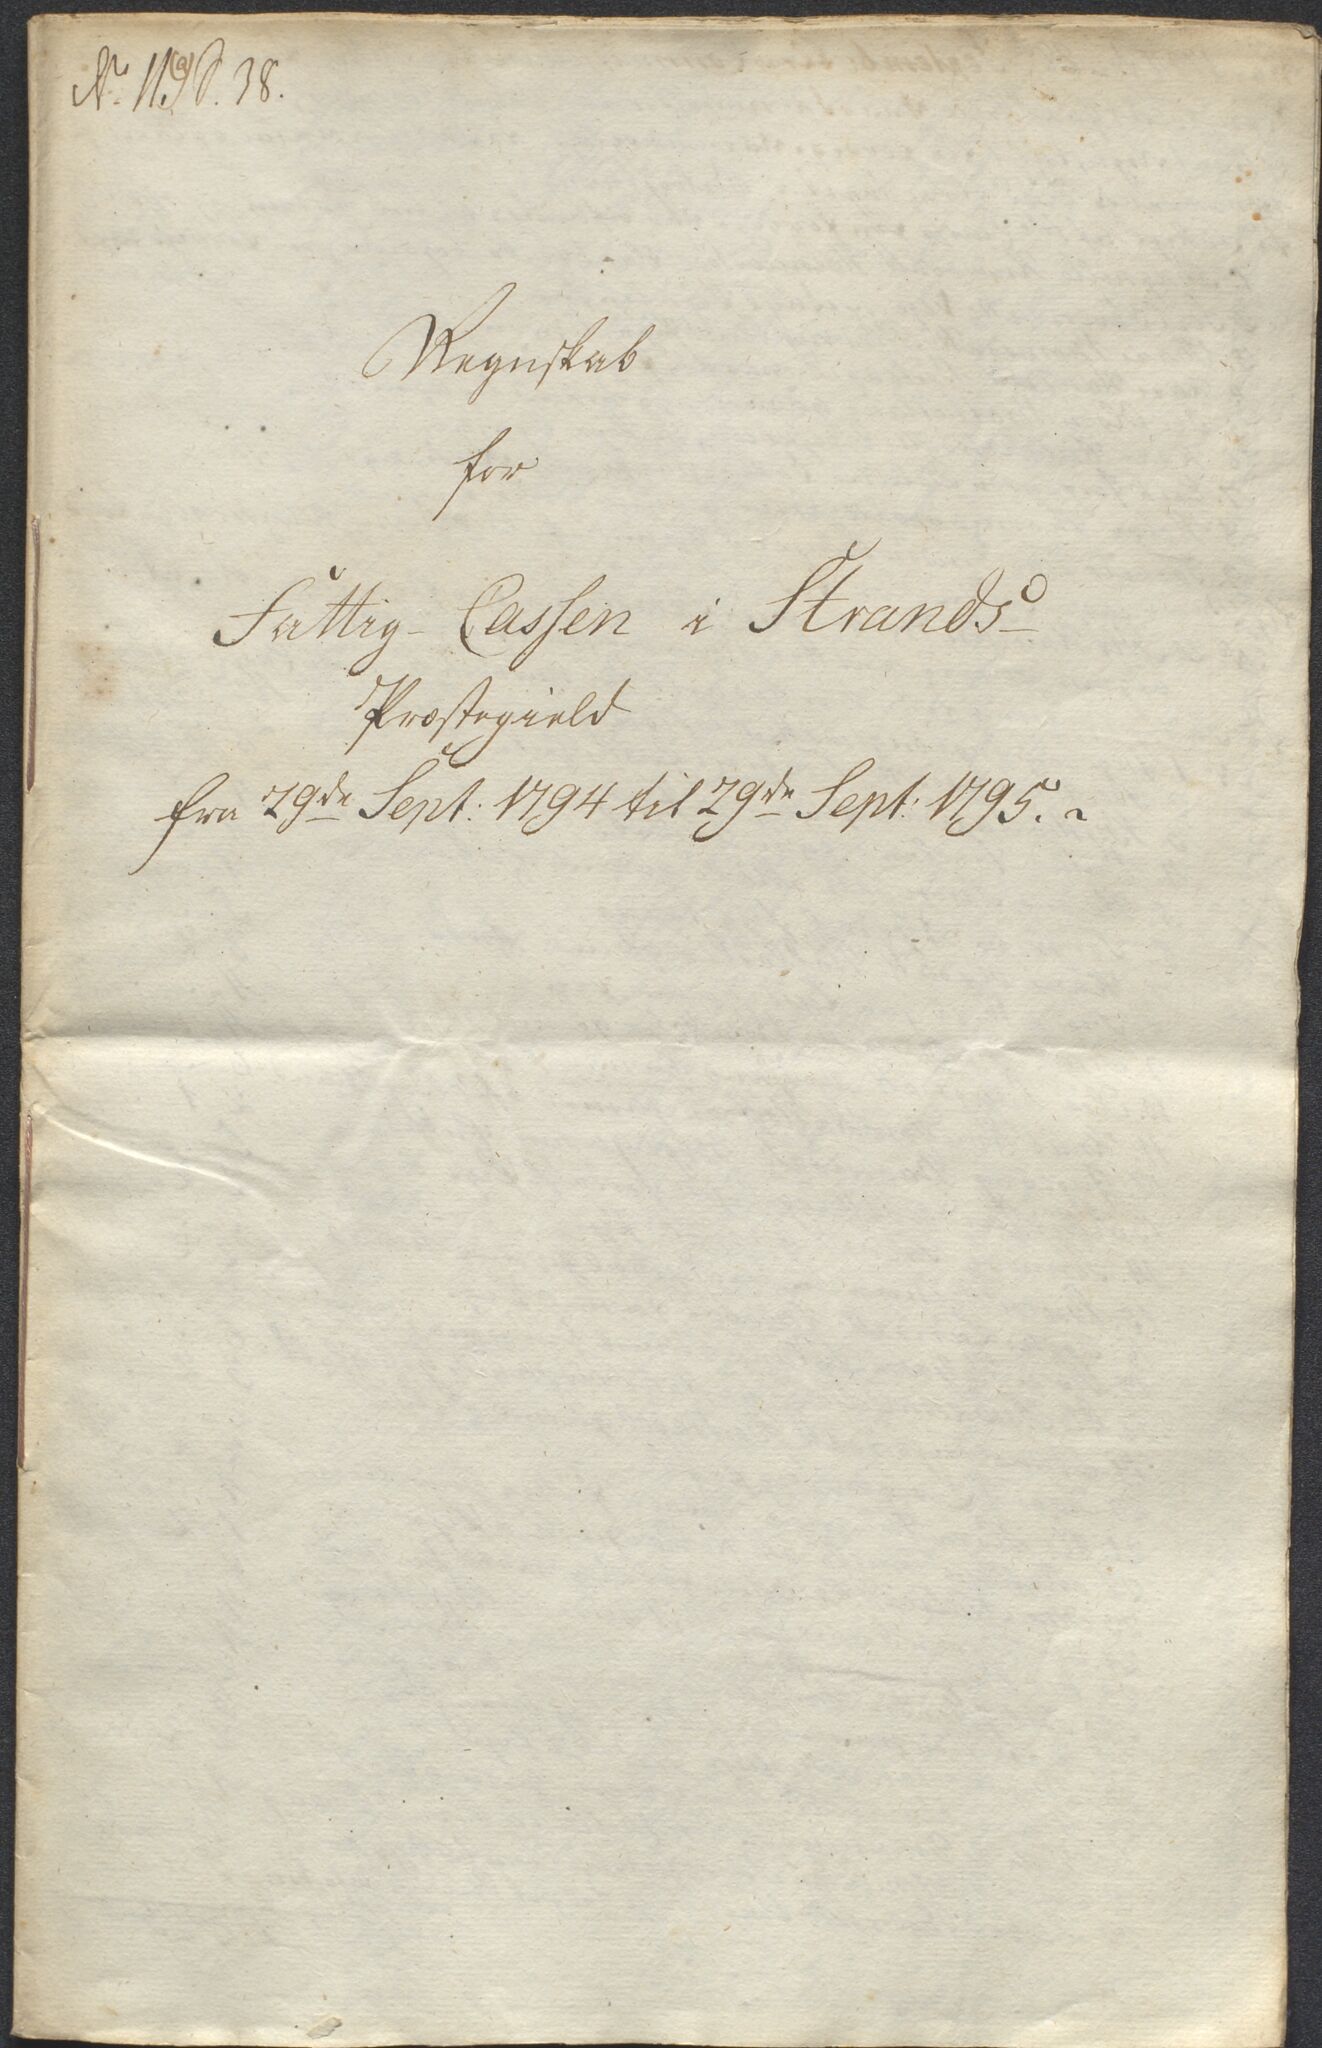 Regnskab
for
Fattig-Cassen i Strands
Præstegield
fra 29de Sept: 1794 til 29de Sept: 1795.